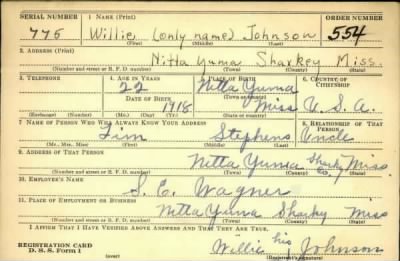 SERIAL NUMBER 1. NAME (Print) ORDER NUMBER
775 Willie (only name) Johnson 554
(First) (Middle) (Last)
2. ADDRESS (Print)
Nitta Yuma Sharkey Miss.
(Number and street or R. F. D. number) (Town) (County) (State)
3. TELEPHONE 4. AGE IN YEARS 5. PLACE OF BIRTH 6. COUNTRY OF CITIZENSHIP
22 Nitta Yuma
DATE OF BIRTH
1918 Miss U. S. A.
(Exchange) (Number) (Mo.) (Day) (Yr.) (State or country)
7. NAME OF PERSON WHO WILL ALWAYS KNOW YOUR ADDRESS 8. RELATIONSHIP OF THAT PERSON
Jim Stephens Uncle
(Mr., Mrs., Miss) (First) (Middle) (Last)
9. ADDRESS OF THAT PERSON
Nitta Yuma Sharkey Co. Miss
(Number and street or R. F. D. number) (Town) (County) (State)
10. EMPLOYER'S NAME
S. E. Wagner
11. PLACE OF EMPLOYMENT OR BUSINESS
Nitta Yuma Sharky Miss
(Number and street or R. F. D. number) (Town) (County) (State)
I AFFIRM THAT I HAVE VERIFIED ABOVE ANSWERS AND THAT THEY ARE TRUE.
REGISTRATION CARD
D. S. S. Form 1
(over)
Willie his Johnson
(Registrant's signature)